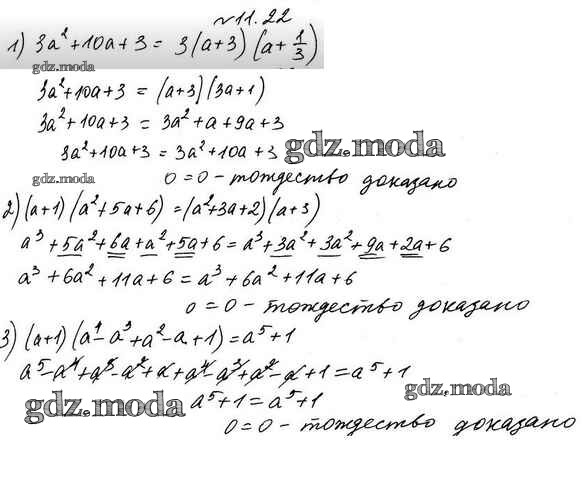 №11.22
1) 3a²+10a+3 = 3(a+3)(a+1/3)
gdz.moda
3a²+10a+3 = (a+3)(3a+1)
3a²+10a+3 = 3a²+a+9a+3
3a²+10a+3 = 3a²+10a+3 gdz.moda
gdz.moda 0=0 - тождество доказано
2) (a+1)(a²+5a+6)=(a²+3a+2)(a+3)
a³+5a²+6a+a²+5a+6=a³+3a²+3a²+9a+2a+6
a³+6a²+11a+6=a³+6a²+11a+6
0=0 - тождество доказано
3) (a+1)(a⁴-a³+a²-a+1)=a⁵+1
a⁵-a⁴+a³-a²+a+a⁴-a³+a²-a+1=a⁵+1
gdz.moda
gdz.moda a⁵+1=a⁵+1
0=0 - тождество доказано